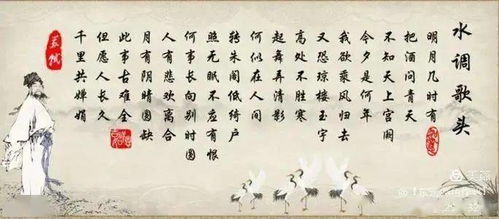 水调歌头
明月几时有
把酒问青天
不知天上宫阙
今夕是何年
我欲乘风归去
又恐琼楼玉宇
高处不胜寒
起舞弄清影
何似在人间
转朱阁低绮户
照无眠不应有恨
何事长向别时圆
人有悲欢离合
月有阴晴圆缺
此事古难全
但愿人长久
千里共婵娟
苏轼